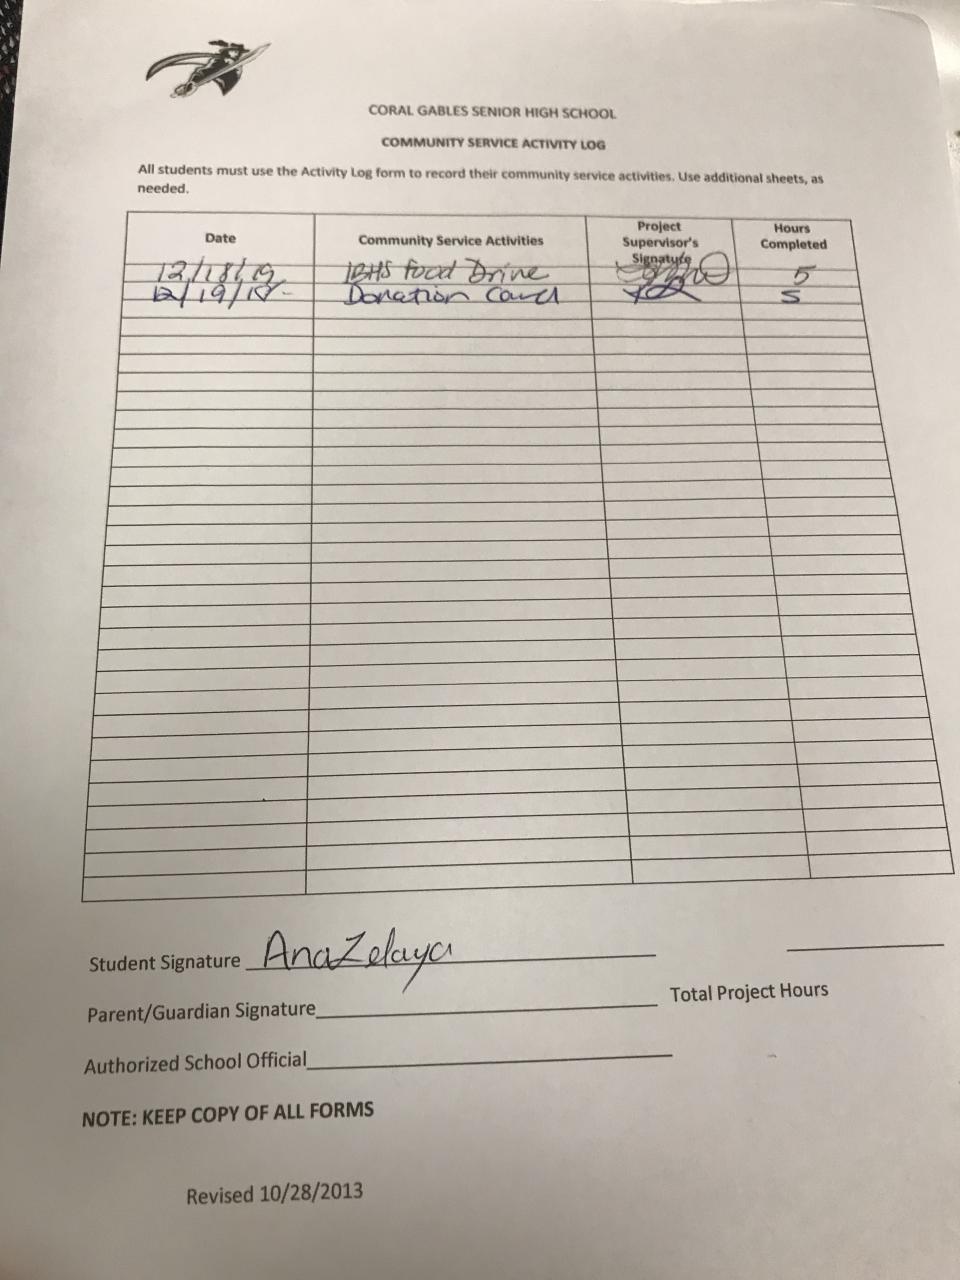 CORAL GABLES SENIOR HIGH SCHOOL
COMMUNITY SERVICE ACTIVITY LOG
All students must use the Activity Log form to record their community service activities. Use additional sheets, as
needed.
Date Community Service Activities Project Supervisor's Signature Hours Completed
12/18/19 IBHS Food Drive 5
12/19/19 Donation 5
Student Signature Ana Zelaya
Total Project Hours
Parent/Guardian Signature
Authorized School Official
NOTE: KEEP COPY OF ALL FORMS
Revised 10/28/2013